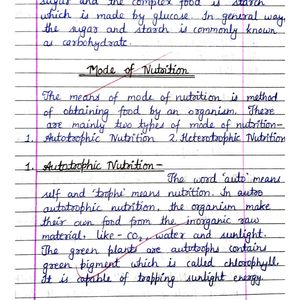 sugar and the complex food is starch
which is made by glucose. In general way,
the sugar and starch is commonly known
as carbohydrate.
Mode of Nutrition
The means of mode of nutrition is method
of obtaining food by an organism. There
are mainly two types of mode of nutrition-
1. Autotrophic Nutrition 2. Heterotrophic Nutrition
1. Autotrophic Nutrition -
The word 'auto' means
self and 'trophe' means nutrition. In auto
autotrophic nutrition, the organism make
their own food from the inorganic raw
material, like - CO2, water and sunlight.
The green plants are autotrophs contains
green pigment which is called chlorophyll.
It is capable of trapping sunlight energy.